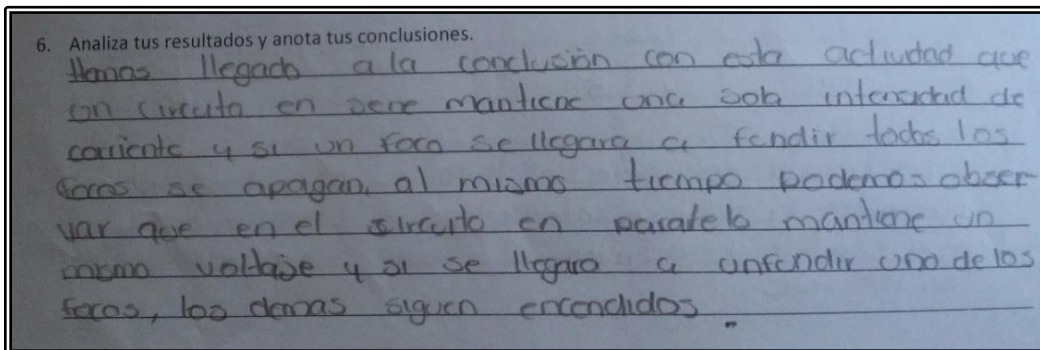 6. Analiza tus resultados y anota tus conclusiones.
Hemos llegado a la conclusión con esta actividad que
un circuito en serie mantiene una sola intensidad de
corriente y si un foco se llegara a fundir todos los
focos se apagan, al mismo tiempo podemos obser
var que en el circuito en paralelo mantiene un
mismo voltaje y si se llegara a unfundir uno de los
focos, los demas siguen encendidos.